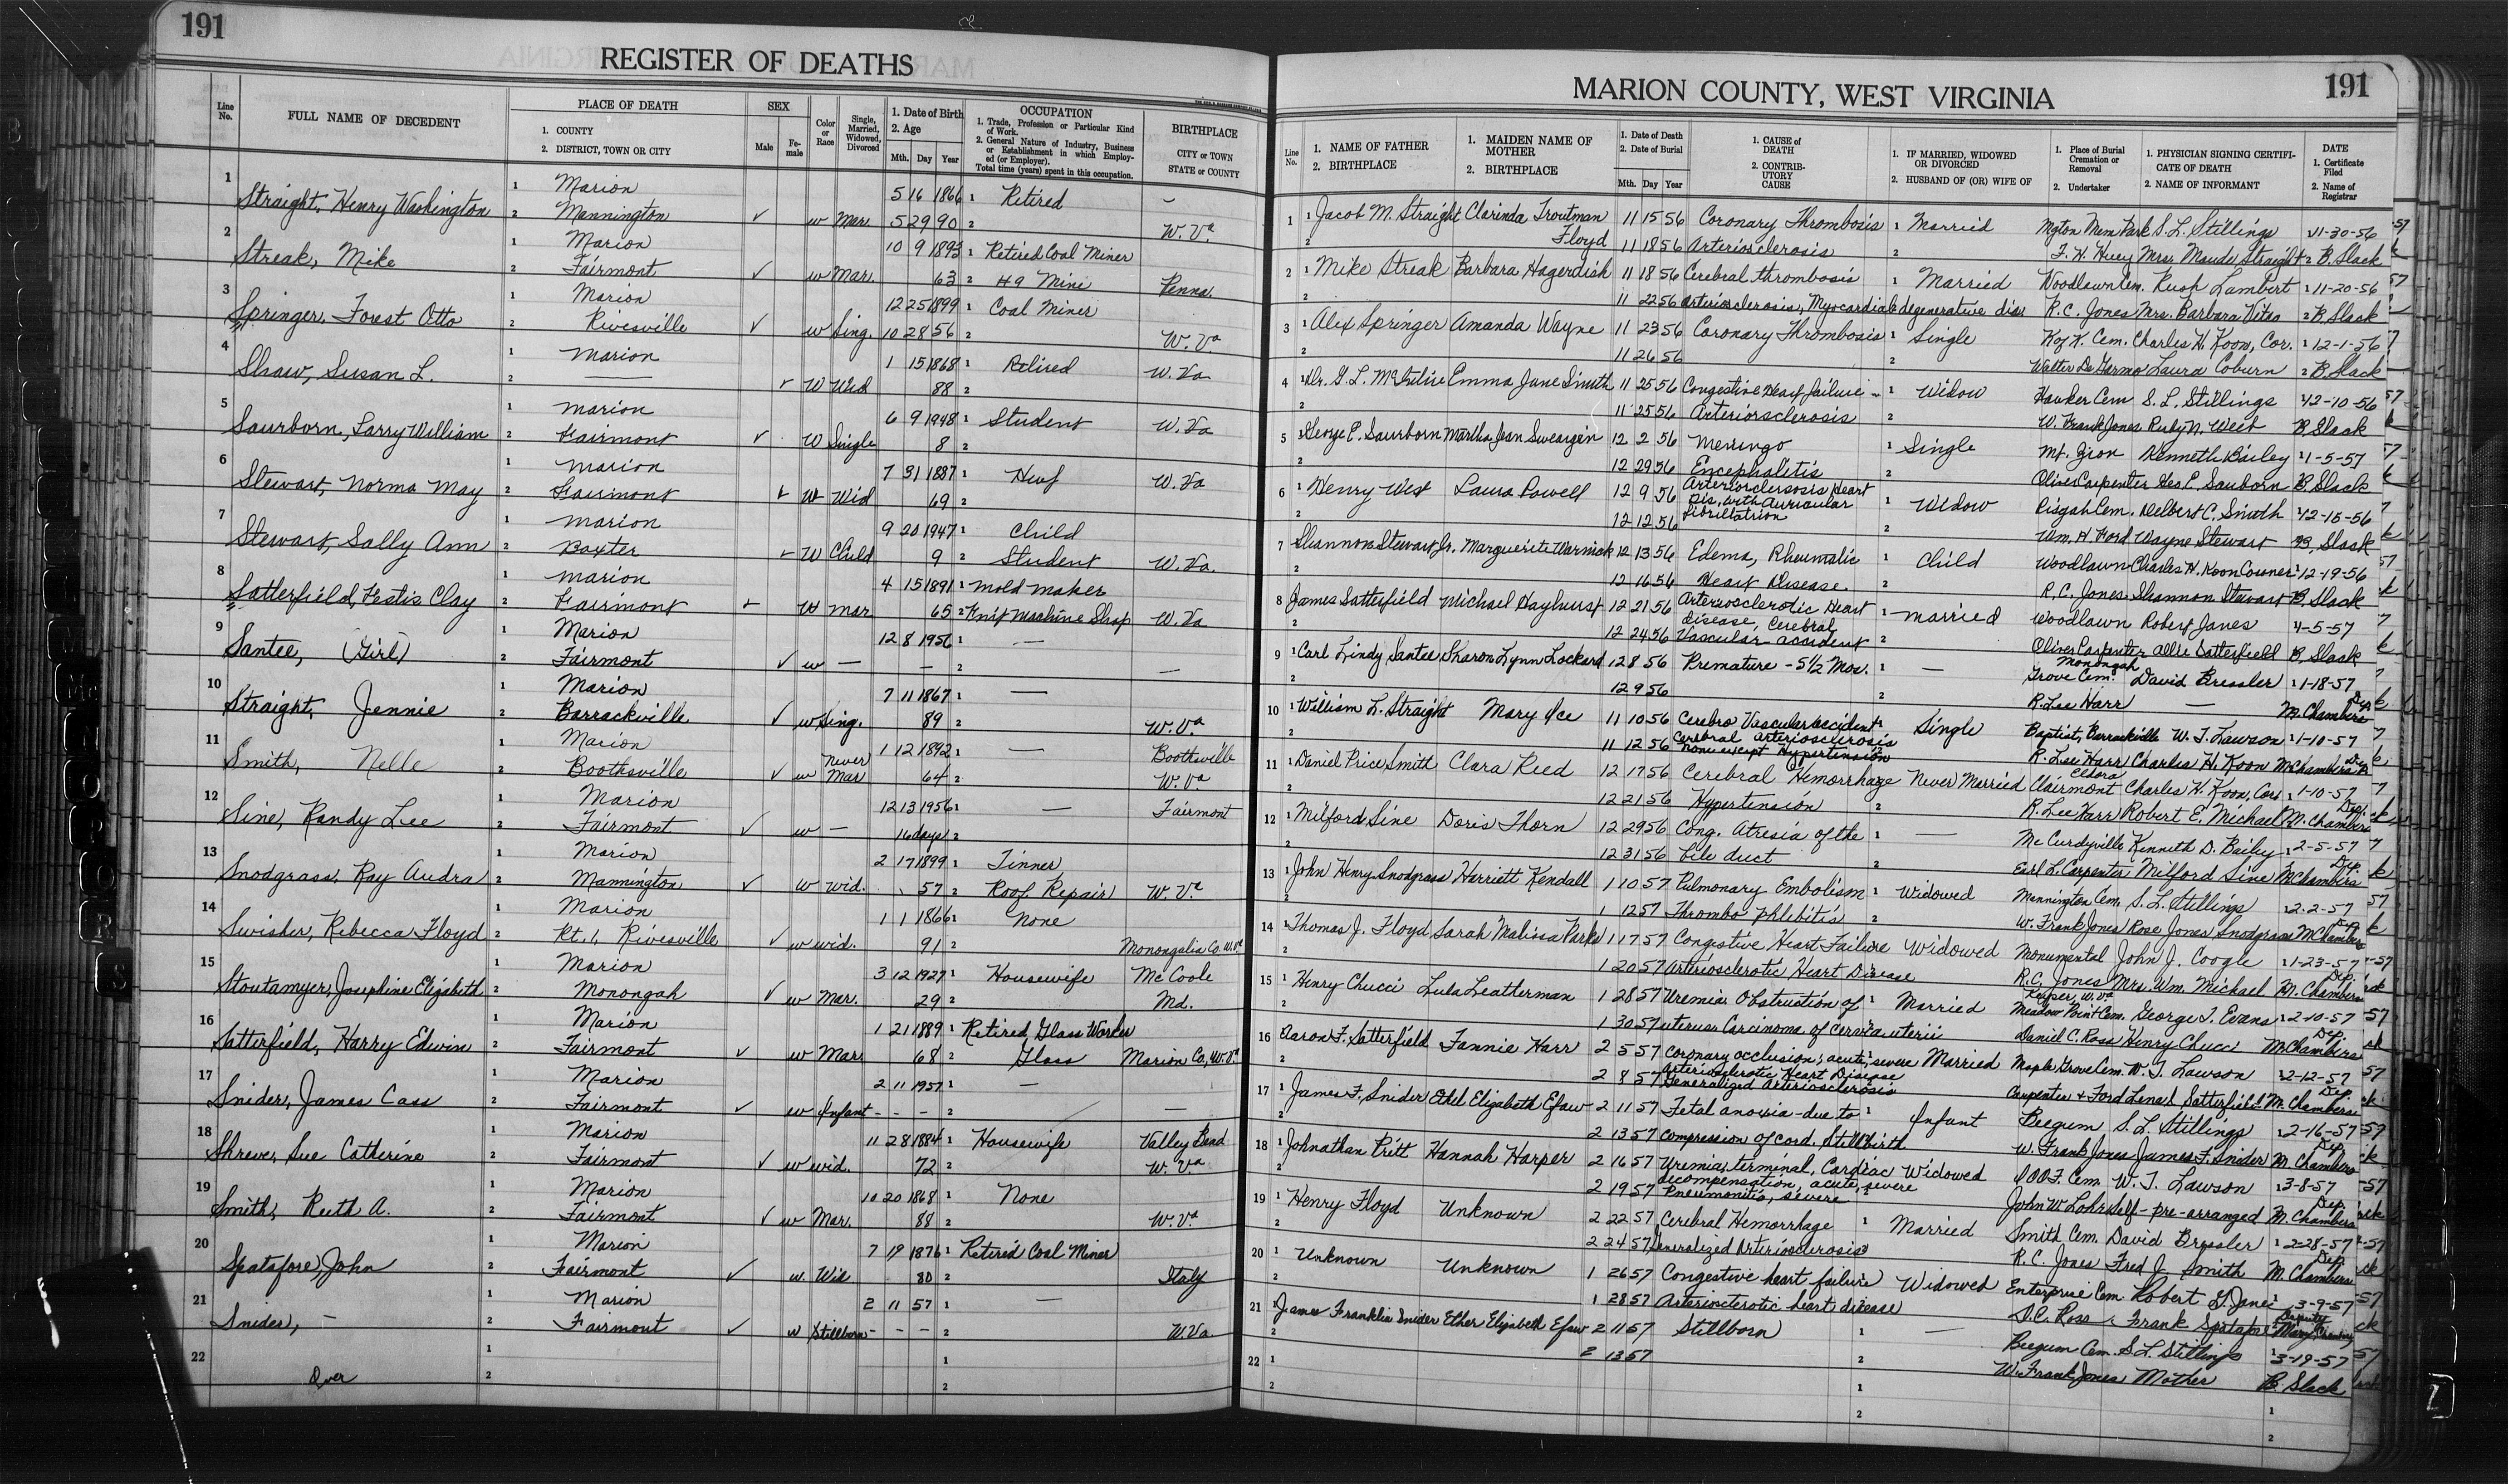 191
REGISTER OF DEATHS
Line No. FULL NAME OF DECEDENT PLACE OF DEATH 1. COUNTY 2. DISTRICT, TOWN OR CITY SEX Male Female Color or Race Single, Married, Widowed, Divorced 1. Date of Birth 2. Age Mth. Day Year OCCUPATION 1. Trade, Profession or Particular Kind of Work. 2. General Nature of Industry, Business or Establishment in which Employed (or Employer). Total time (years) spent in this occupation. BIRTHPLACE CITY or TOWN STATE or COUNTY
1 Straight, Henry Washington 1 Marion 5 16 1866 1 Retired -
2 Mannington ✓ w Mar. 5 29 90 2 W.Va
2 Streak, Mike 1 Marion 10 9 1893 1 Retired Coal Miner
2 Fairmont ✓ w Mar. 63 2 H9 Mine Penna.
3 Springer, Forest Otto 1 Marion 12 25 1899 1 Coal Miner
2 Rivesville ✓ w Sing. 10 28 56 2 W.Va
4 Shaw, Susan L. 1 Marion 1 15 1868 1 Retired W. Va
2 — ✓ W Wid 88 2
5 Saurborn, Larry William 1 Marion 6 9 1948 1 Student W. Va
2 Fairmont ✓ W Single 8 2
6 Stewart, Norma May 1 Marion 7 31 1887 1 Hwf W. Va
2 Fairmont ✓ W Wid 69 2
7 Stewart, Sally Ann 1 Marion 9 20 1947 1 Child
2 Baxter ✓ W Child 9 2 Student W. Va.
8 Satterfield, Festis Clay 1 Marion 4 15 1891 1 Mold maker
2 Fairmont ✓ W mar 65 2 Knif Machine Shop W. Va
9 Santee, (Girl) 1 Marion 12 8 1956 1 —
2 Fairmont ✓ w — — 2 —
10 Straight, Jennie 1 Marion 7 11 1867 1 —
2 Barrackville ✓ w Sing. 89 2 W.Va
11 Smith, Nelle 1 Marion 1 12 1892 1 — Boothsville
2 Boothsville ✓ w Never Mar 64 2 W.Va
12 Sine, Randy Lee 1 Marion 12 13 1956 1 — Fairmont
2 Fairmont ✓ w — 16 days 2
13 Snodgrass, Ray Audra 1 Marion 2 17 1899 1 Tinner
2 Mannington ✓ w wid. 57 2 Roof Repair W.Va
14 Swisher, Rebecca Floyd 1 Marion 1 1 1866 1 None
2 Rt. 1, Rivesville ✓ w wid. 91 2 Monongalia Co. W.Va
15 Stoutamyer, Josephine Elizabeth 1 Marion 3 12 1927 1 Housewife McCoole
2 Monongah ✓ w Mar. 29 2 Md.
16 Satterfield, Harry Edwin 1 Marion 1 21 1889 1 Retired Glass Worker
2 Fairmont ✓ w Mar. 68 2 Glass Marion Co, W.Va
17 Snider, James Cass 1 Marion 2 11 1957 1 —
2 Fairmont ✓ w Infant - - - 2 —
18 Shreve, Sue Catherine 1 Marion 11 28 1884 1 Housewife Valley Bend
2 Fairmont ✓ w wid. 72 2 W.Va
19 Smith, Ruth A. 1 Marion 10 20 1868 1 None
2 Fairmont ✓ w Mar. 88 2 W.Va
20 Spatafore, John 1 Marion 7 19 1876 1 Retired Coal Miner
2 Fairmont ✓ w. Wid 80 2 Italy
21 Snider, - 1 Marion 2 11 57 1 —
2 Fairmont ✓ w Stillborn - - - 2 W.Va
22 Over 1 1
2 2
MARION COUNTY, WEST VIRGINIA
191
Line No. 1. NAME OF FATHER 2. BIRTHPLACE 1. MAIDEN NAME OF MOTHER 2. BIRTHPLACE 1. Date of Death 2. Date of Burial Mth. Day Year 1. CAUSE of DEATH 2. CONTRIBUTORY CAUSE 1. IF MARRIED, WIDOWED OR DIVORCED 2. HUSBAND OF (OR) WIFE OF 1. Place of Burial Cremation or Removal 2. Undertaker 1. PHYSICIAN SIGNING CERTIFICATE OF DEATH 2. NAME OF INFORMANT DATE 1. Certificate Filed 2. Name of Registrar
1 1 Jacob M. Straight Clarinda Troutman 11 15 56 Coronary Thrombosis 1 Married Mgton Mem Park S. L. Stillings 11-30-56
2 Floyd 11 18 56 Arteriosclerosis 2 F. H. Huey Mrs. Maude Straight 2 B. Slack
2 1 Mike Streak Barbara Hagerdish 11 18 56 Cerebral thrombosis 1 Married Woodlawn Cem. Rush Lambert 1 11-20-56
2 11 22 56 arteriosclerosis, Myocardial degenerative dis. R. C. Jones Mrs. Barbara Vitas 2 B. Slack
3 1 Alex Springer Amanda Wayne 11 23 56 Coronary Thrombosis 1 Single K of K. Cem. Charles H. Koon, Cor. 1 12-1-56
2 11 26 56 2 Walter DeGarmo Laura Coburn 2 B. Slack
4 1 Dr. G. L. Emma Jane Smith 11 25 56 Congestive Heart failure 1 Widow Hawker Cem S. L. Stillings 12-10-56
2 11 25 56 Arteriosclerosis 2 W. Frank Jones Ruby N. West B. Slack
5 1 George E. Saurborn Martha Jean Sweargin 12 2 56 Meningo 1 Single Mt. Zion Kenneth Bailey 1-5-57
2 12 29 56 Encephalitis 2 Oliver Carpenter Geo E. Saurborn B. Slack
6 1 Henry West Laura Powell 12 9 56 Arteriosclerosis Heart Dis. with Auricular 1 Widow Pisgah Cem. Delbert C. Smith 12-15-56
2 12 12 56 fibrillatrion 2 Wm. H. Ford Wayne Stewart B. Slack
7 1 Shannon Stewart Jr. Marguerite Warnick 12 13 56 Edema, Rheumatic 1 Child Woodlawn Charles H. Koon Couner 12-19-56
2 12 16 56 Heart Disease. 2 R. C. Jones Shannon Stewart B. Slack
8 1 James Satterfield Michael Hayhurst 12 21 56 Arteriosclerotic Heart disease, Cerebral 1 Married Woodlawn Robert Janes 4-5-57
2 12 24 56 Vascular accident 2 Oliver Carpenter Allie Satterfield B. Slack
9 1 Carl Lindy Santee Sharon Lynn Lockard 12 8 56 Premature - 5 1/2 Mos. 1 — Monongah Grove Cem. David Bressler 1 1-18-57
2 12 9 56 2 R. Lee Harr — M. Chambers Dep
10 1 William L. Straight Mary Ice 11 10 56 Cerebro Vascular accident Single Baptist, Barrackville W. T. Lawson 1 1-10-57
2 11 12 56 Cerebral arteriosclerosis none except Hypertension R. Lee Harr Charles H. Koon M. Chambers Dep
11 1 Daniel Price Smith Clara Reed 12 17 56 Cerebral Hemorrhage Never Married Clairmont Charles H. Koon, Cor. 1 1-10-57
2 12 21 56 Hypertension 2 R. Lee Harr Robert E. Michael M. Chambers Dep.
12 1 Milford Sine Doris Thorn 12 29 56 Cong. Atresia of the 1 — McCurdysville Kenneth D. Bailey 1 2-5-57
2 12 31 56 bile duct 2 Earl L. Carpenter Milford Sine M. Chambers Dep.
13 1 John Henry Snodgrass Harriett Kendall 1 10 57 Pulmonary Embolism 1 Widowed Mannington Cem. S. L. Stillings 1 2-2-57
2 1 12 57 Thrombo phlebitis 2 W. Frank Jones Rose Jones Snodgrass M Chambers Dep
14 1 Thomas J. Floyd Sarah Malissa Parks 1 17 57 Congestive Heart Failure Widowed Monumental John J. Coogle 1 1-23-57
2 1 20 57 Arteriosclerotic Heart Disease R. C. Jones Mrs. Wm. Michael M. Chambers Dep.
15 1 Henry Chucci Lula Leatherman 1 28 57 Uremia Obstruction of 1 Married Keyser, W.Va Meadow Point Cem. George T. Evans 1 2-10-57
2 1 30 57 uterus Carcinoma of cervix uterii Daniel C. Ross Henry Chucci M Chambers Dep
16 1 Aaron F. Satterfield Fannie Harr 2 5 57 Coronary occlusion; acute, severe Married Maple Grove Cem. W. T. Lawson 1 2-12-57
2 2 8 57 Arteriosclerotic Heart Disease Generalized Arteriosclerosis Carpenter & Ford Lena S. Satterfield M. Chambers Dep.
17 1 James F. Snider Ethel Elizabeth Efaw 2 11 57 Fetal anoxia - due to 1 Infant Beegum S. L. Stillings 1 2-16-57
2 2 13 57 compression of cord. Stillbirth W. Frank Jones James F. Snider M. Chambers Dep
18 1 Johnathan Pritt Hannah Harper 2 16 57 Uremia, terminal, Cardiac Widowed IOOF. Cem. W. T. Lawson 1 3-8-57
2 2 19 57 decompensation, acute, severe Pneumonitis, severe John W Lohr Self - pre-arranged M. Chambers Dep
19 1 Henry Floyd Unknown 2 22 57 Cerebral Hemorrhage 1 Married Smith Cem. David Bressler 1 2-28-57
2 2 24 57 Generalized Arteriosclerosis R. C. Jones Fred J. Smith M. Chambers Dep.
20 1 Unknown Unknown 1 26 57 Congestive heart failure Widowed Enterprise Cem. Robert G. Janes 3-9-57
2 1 28 57 Arteriosclerotic heart disease D.C. Ross Frank Spatafore Mary Chambers Deputy
21 1 James Franklin Snider Ether Elizabeth Efaw 2 11 57 Stillborn 1 — Beegum Cem. S.L. Stillings 1 3-19-57
2 2 13 57 2 W. Frank Jones Mother B. Slack
22 1 1 1
2 2 2